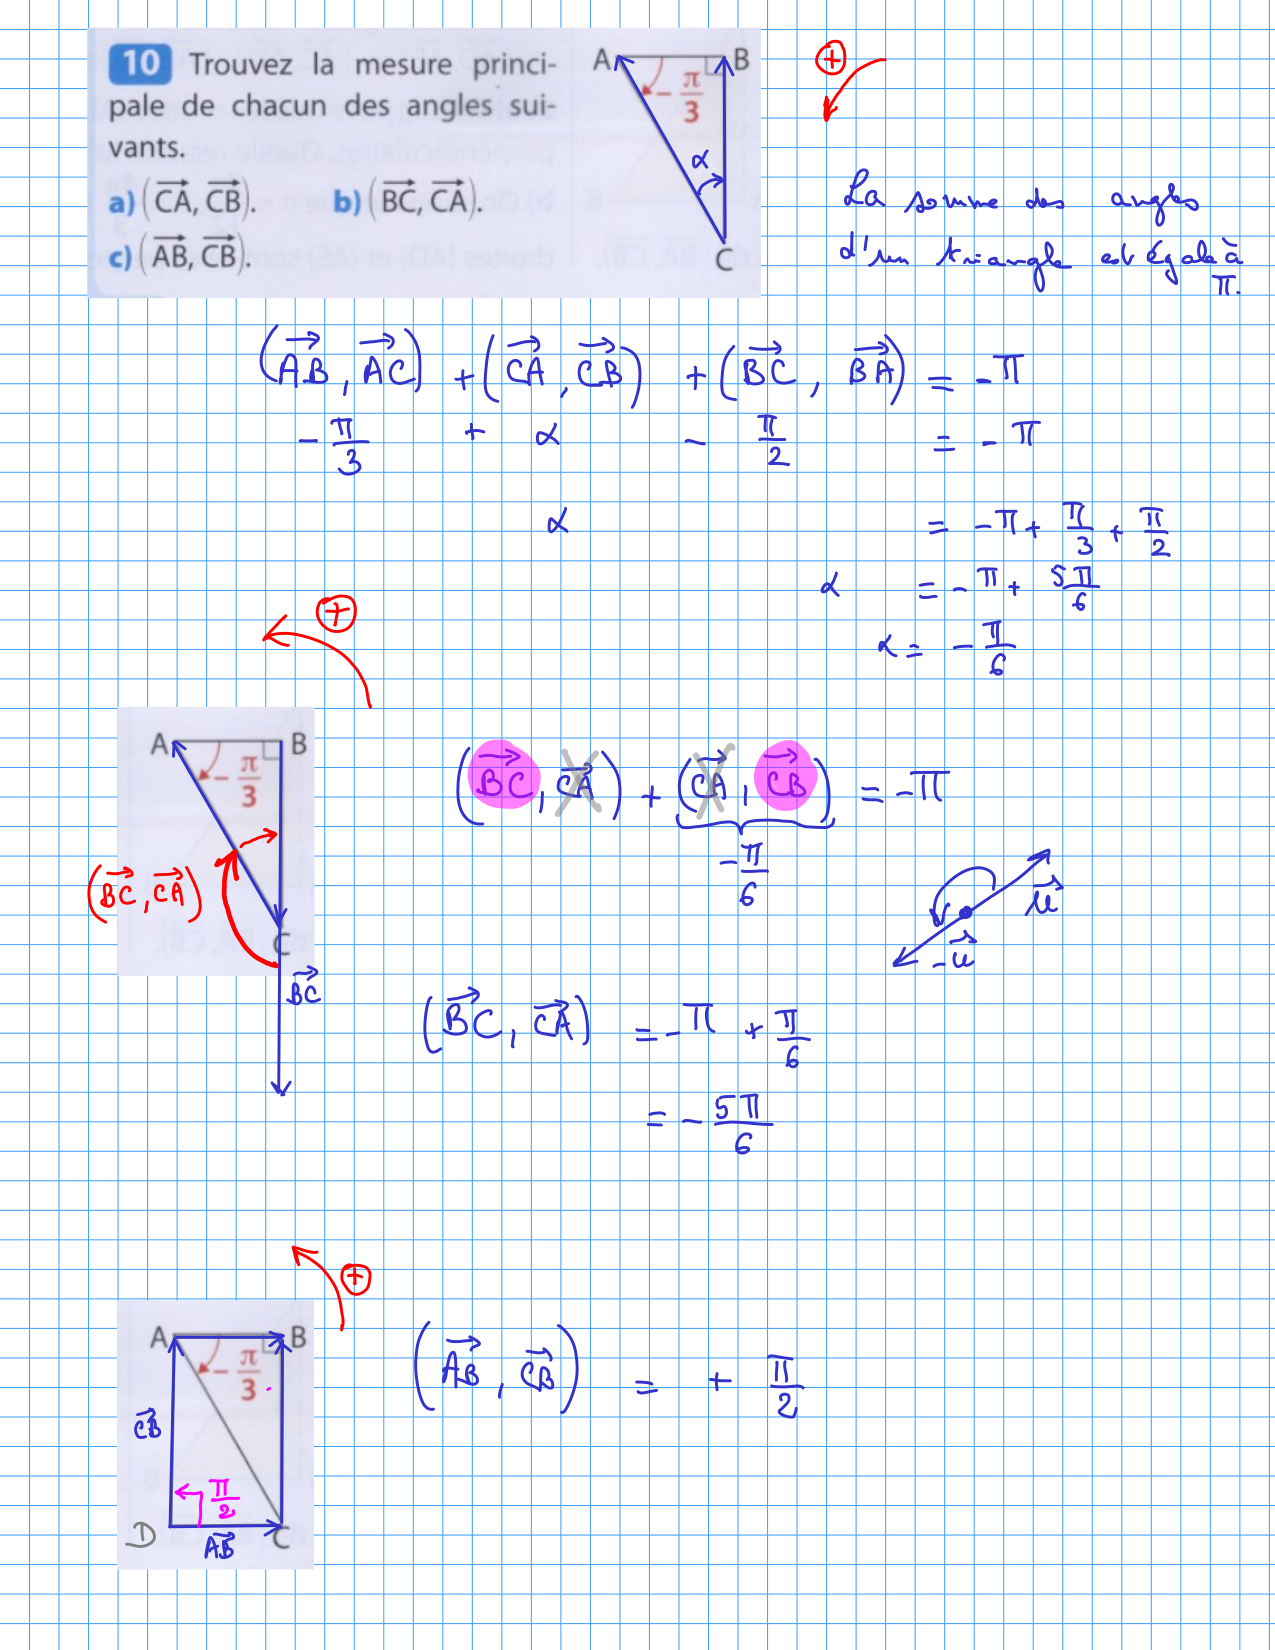 10 Trouvez la mesure princi-
pale de chacun des angles sui-
vants.
a) (CA, CB). b) (BC, CA).
c) (AB, CB).
A B
- π/3
α
C
+
La somme des angles
d'un triangle est égale à
π.
(AB, AC) + (CA, CB) + (BC, BA) = -π
- π/3 + α - π/2 = - π
α = -π + π/3 + π/2
α = - π + 5π/6
α = - π/6
+
A B
- π/3
(BC, CA)
C
BC
(BC, CA) + (CA, CB) = -π
- π/6
u
-u
(BC, CA) = -π + π/6
= - 5π/6
+
A B
- π/3
CB
π/2
D C
AB
(AB, CB) = + π/2